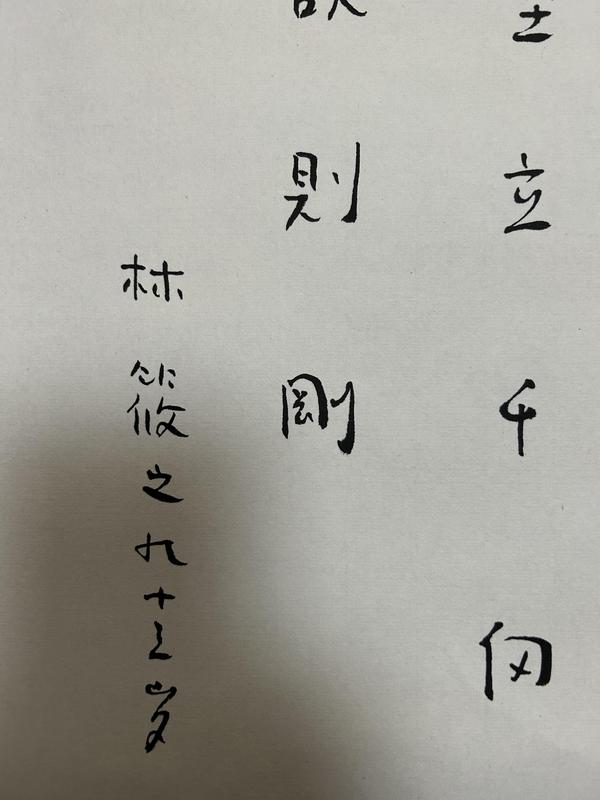 壁立千仞
欲則剛
林筱之九十三岁